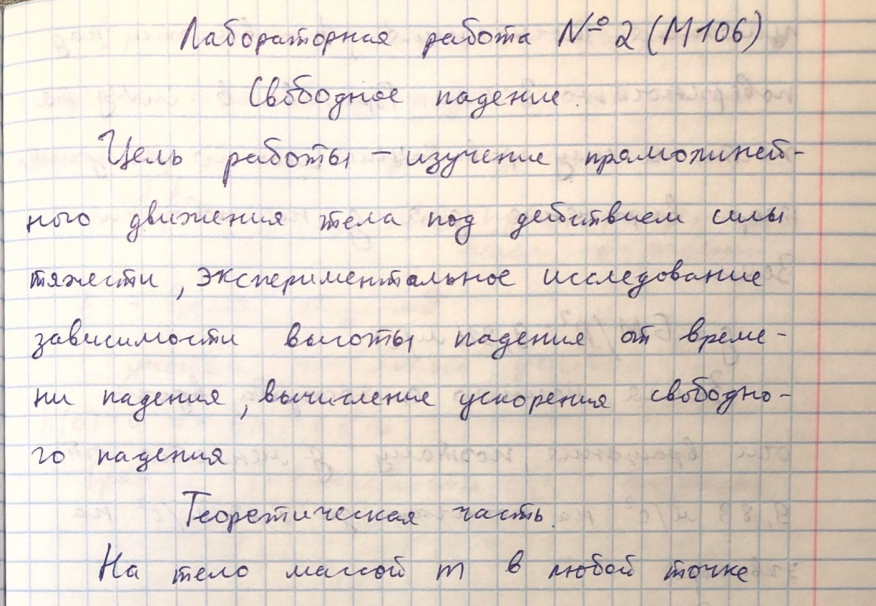 Лабораторная работа № 2 (М106)
Свободное падение.
Цель работы – изучение прямолиней-
ного движения тела под действием силы
тяжести, экспериментальное исследование
зависимости высоты падения от време-
ни падения, вычисление ускорения свободно-
го падения
Теоретическая часть.
На тело массой m в любой точке